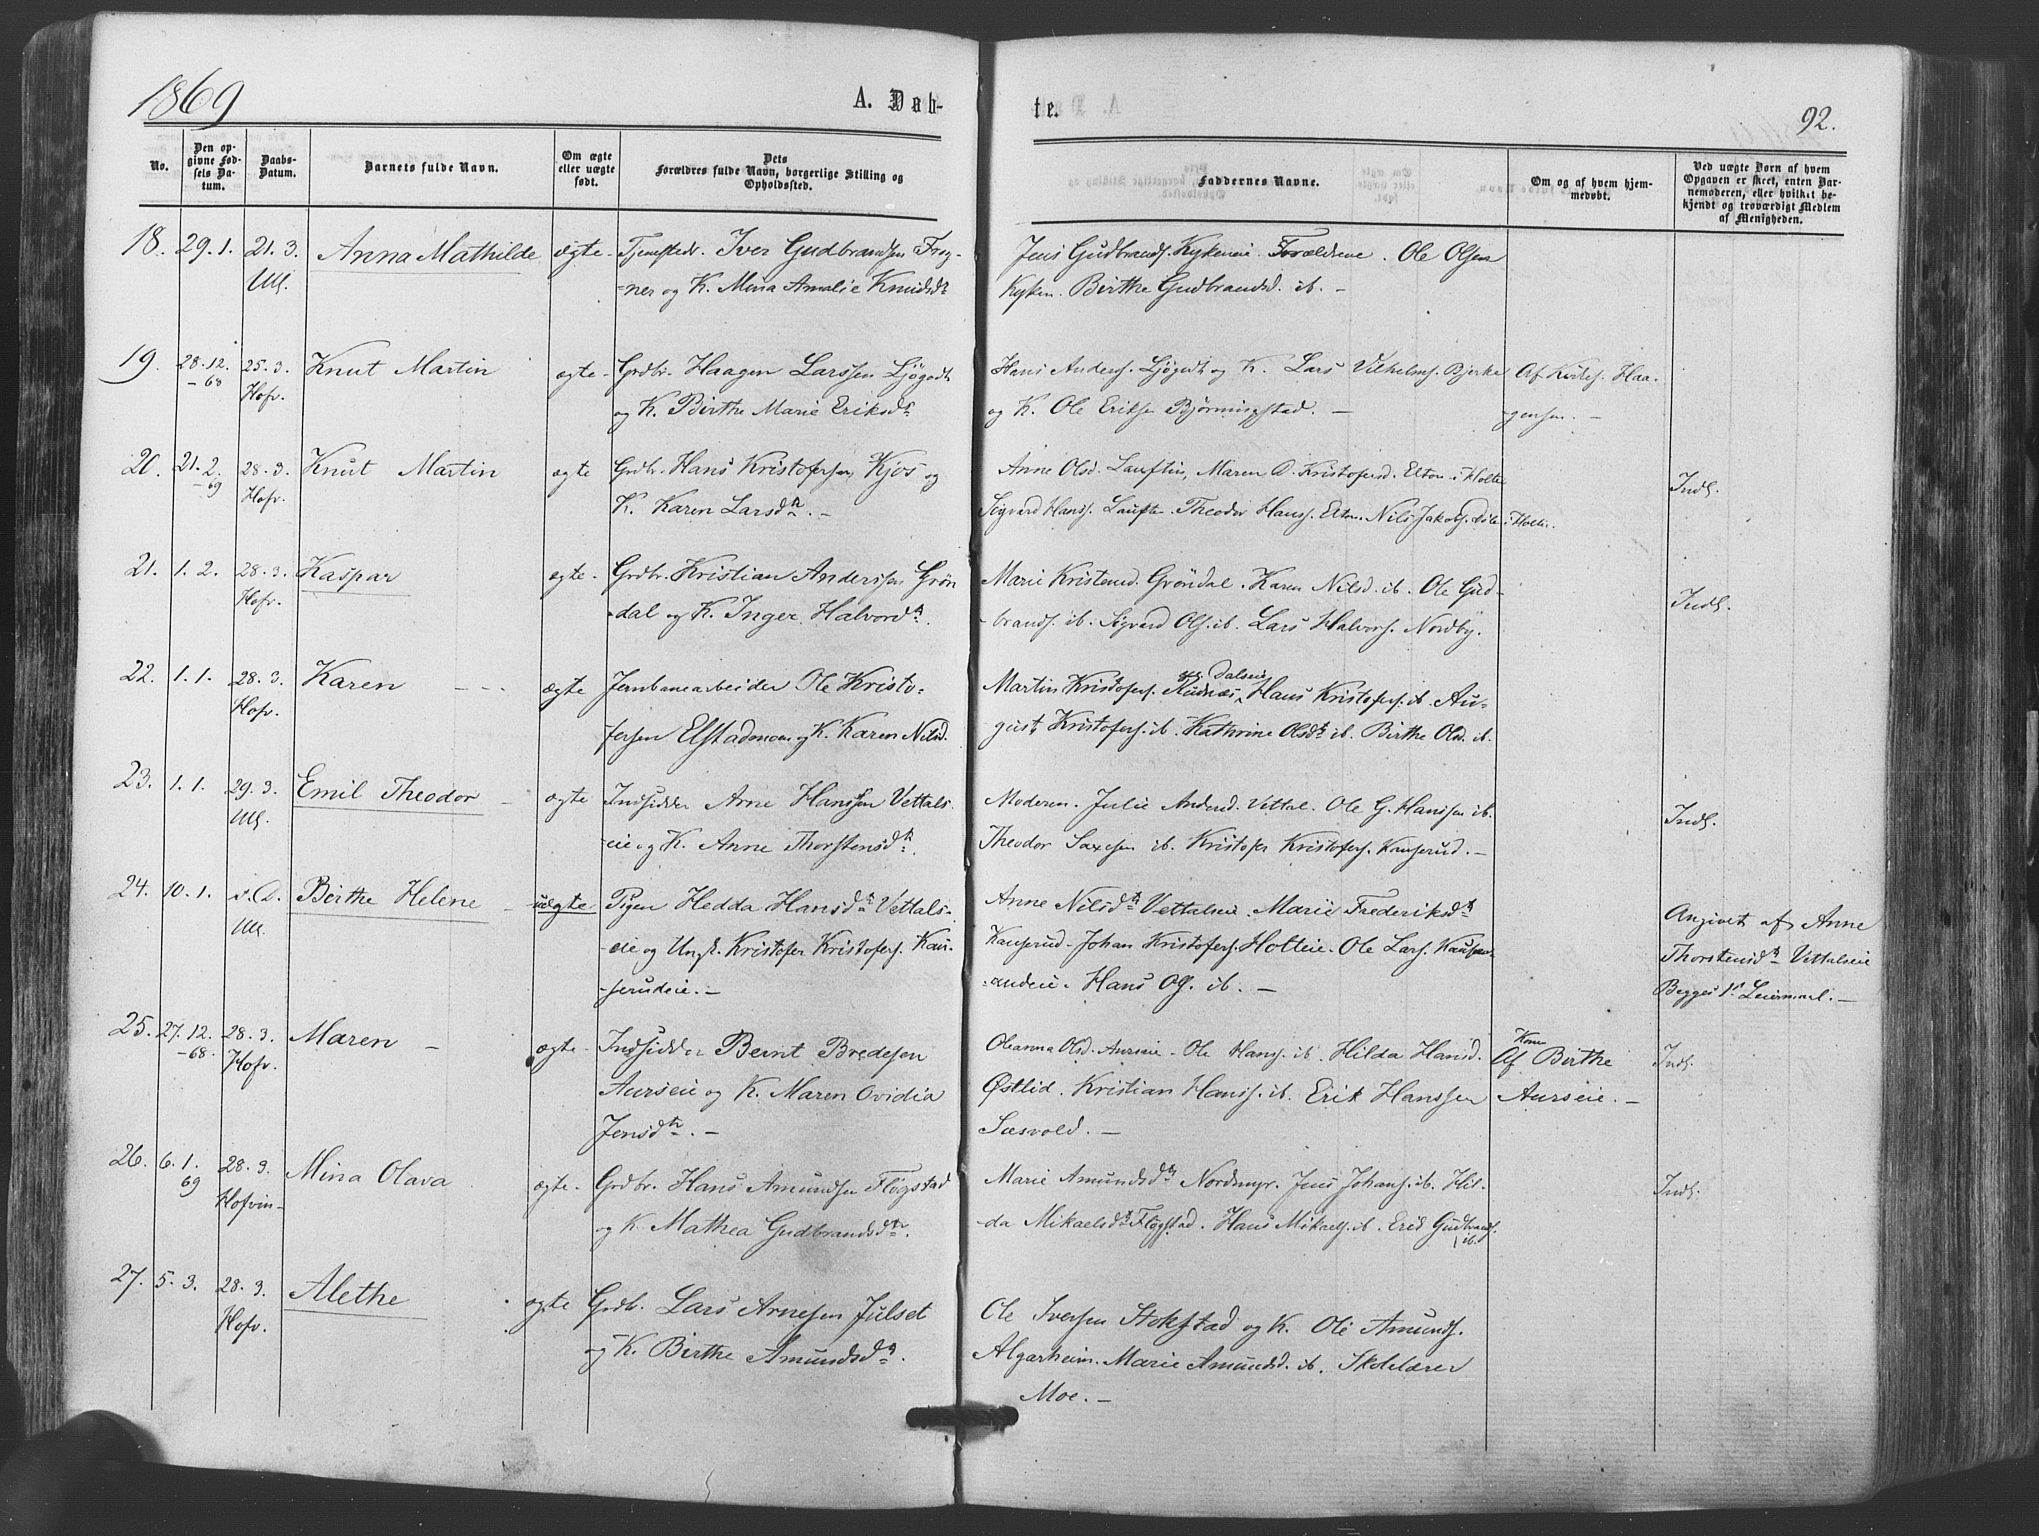 1869
A. Døb-
te.
92.
No.
Den op-
givne Fød-
sels Da-
tum.
Daabs-
Datum.
Barnets fulde Navn.
Om ægte
eller uægte
født.
Dets
Forældres fulde Navn, borgerlige Stilling og
Opholdssted.
Faddernes Navne.
Om og af hvem hjem-
medøbt.
Ved uægte Børn af hvem
Opgaven er skeet, enten Bar-
nemoderen, eller hvilket be-
kjendt og troværdigt Medlem
af Menigheden.
18. 29. 1. 21. 3. Anna Mathilde ægte Tjenstedr. Iver Gudbrandsen Frog-
Ull. -ner og K. Mina Amalie Knudsdt
Jens Gudbrands. Kykeneie. Forældrene. Ole Olsen
Kyken. Birthe Gudbrandsd. ib. -
19. 28. 12. 25. 3. Knut Martin ægte- Grdbr. Haagen Larssen Ljøgodt
-68 Hofv. og K. Birthe Marie Eriksdt
Hans Anders. Ljøgodt og K. Lars Vilhelms. Bjerke Af Haa-
og K. Ole Eriksen - gensen. -
20. 21. 2. 28. 3. Knut Martin ægte Grdbr. Hans Kristofersen Kjos og
-69 Hofv. K. Karen Larsdt. -
Anne Olsd. Maren Kristofersd. Elton i Holter
Sigvard Hanss. Theodor Hanss. Elton. Nils Jakobs. i Holter.
Indl.
21. 1. 2. 28. 3. Kaspar ægte- Grdbr. Kristian Anderssen Grøn
Hofv. -dal og K. Inger Halvordt.
Marie Kristensd. Grøndal. Karen Nilsd. ib. Ole Gud-
-brands. ib. Sigvard Ols. ib. Lars Halvors. Nordby.
Indl.
22. 1. 1. 28. 3. Karen - - - ægte Jernbanearbeider Ole Kristo-
Hofv. fersen Elstadmoen og K. Karen Nilsd.
Dalseie
Martin Kristofers. Hans Kristofers. ib. Au-
gust Kristofers. ib. Kathrine Olsdt ib. Birthe Olsd. ib.
23. 1. 1. 29. 3. Emil Theodor - ægte Indsidder Arne Hanssen Vettals-
Ull. -eie og K. Anne Thorstensdt.
Moderen. Julie Andersd. Vettal. Ole G. Hanssen ib.
Theodor Saxesen ib. Kristofer Kristofers. Kauserud. -
Indl.
24. 10. 1. s. D. Birthe Helene - uægte Pigen Hedda Hansdt Vettals-
Ull. -eie og Ungk. Kristofer Kristofers. Kau-
-serudeie. -
Anne Nilsdt Vettalseie. Marie Frederiksdt
Kauserud. Johan Kristofers. Holteie. Ole Lars. Kauser-
-undeie. Hans Ols. ib. -
Angivet af Anne
Thorstensdt Vettalseie
Begges 1ste Leiermaal. -
25. 27. 12. 28. 3. Maren - ægte- Indsidder Bernt Bredesen
-68. Hofv. Aurseie og K. Maren Ovidia
Jensdt. -
Oleanna Olsd. Aurseie. Ole Hans. ib. Hilda Hansd.
Østlid. Kristian Hanss. ib. Erik Hanssen
Sæsvold. -
Kone
Af Birthe
Aurseie. -
Indl.
26. 6. 1. 28. 3. Mina Olava ægte- Grdbr. Hans Amundsen Fløgstad
69 Hofvin- og K. Mathea Gudbrandsdt.
Marie Amundsdt Nordmyr. Jens Johans. ib. Hil-
-da Mikaelsdt Fløgstad. Hans Mikaels. ib. Erik Gudbrands.
ib.
Indl.
27. 5. 3. 28. 3. Alethe ægte Grdb. Lars Arnesen Julset
Hofv. og K. Birthe Amundsdt.
Ole Iversen Stokstad og K. Ole Amunds.
Algarheim. Marie Amundsd. ib. Skolelærer
Moe. -